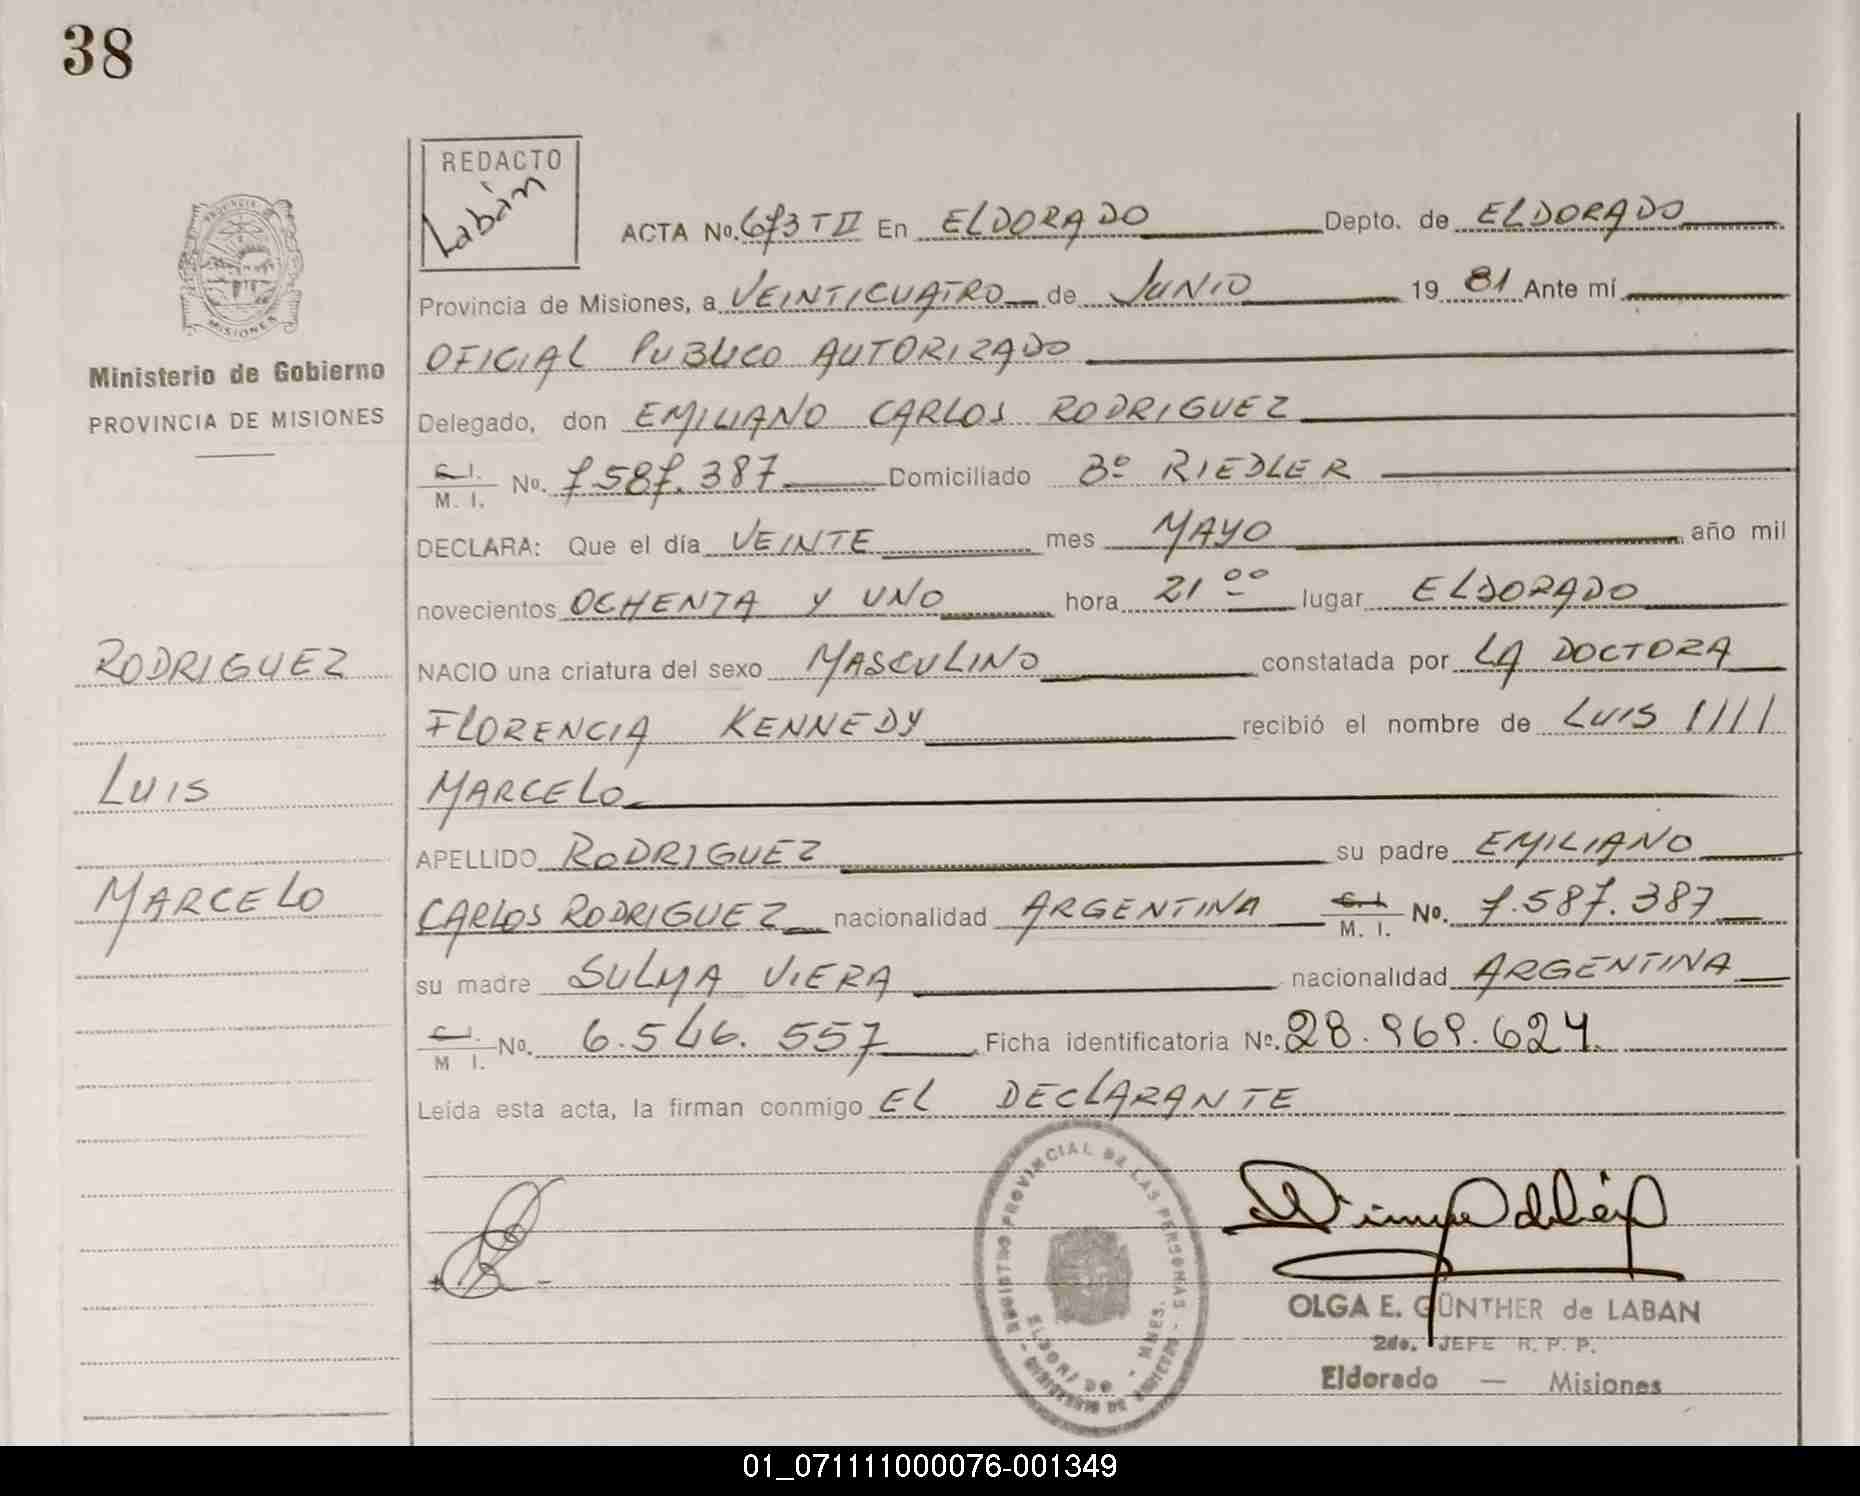 38
REDACTO
Labán
ACTA No. 673 T II En ELDORADO Depto. de ELDORADO
Provincia de Misiones, a VEINTICUATRO de JUNIO 19 81 Ante mí
OFICIAL PUBLICO AUTORIZADO
Ministerio de Gobierno
PROVINCIA DE MISIONES
Delegado, don EMILIANO CARLOS RODRIGUEZ
C. I. M. I. No. 7.587.387 Domiciliado Bº RIEDLER
DECLARA: Que el día VEINTE mes MAYO año mil
novecientos OCHENTA Y UNO hora 21 00 lugar ELDORADO
RODRIGUEZ
NACIO una criatura del sexo MASCULINO constatada por LA DOCTORA
FLORENCIA KENNEDY recibió el nombre de LUIS ////
LUIS
MARCELO
APELLIDO RODRIGUEZ su padre EMILIANO
MARCELO
CARLOS RODRIGUEZ nacionalidad ARGENTINA C. I. M. I. No. 7.587.387
su madre SULMA VIERA nacionalidad ARGENTINA
C. I. M I. No. 6.546.557 Ficha identificatoria No. 28.969.624
Leída esta acta, la firman conmigo EL DECLARANTE
REGISTRO PROVINCIAL DE LAS PERSONAS
ELDORADO - MNES.
OLGA E. GÜNTHER de LABAN
2do. JEFE R. P. P.
Eldorado — Misiones
01_071111000076-001349